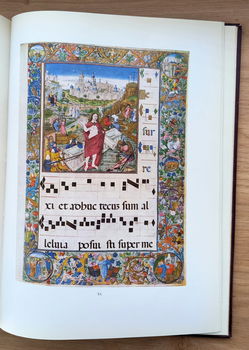 sur
re
xi et adhuc tecus sum al
leluia posui sti super me